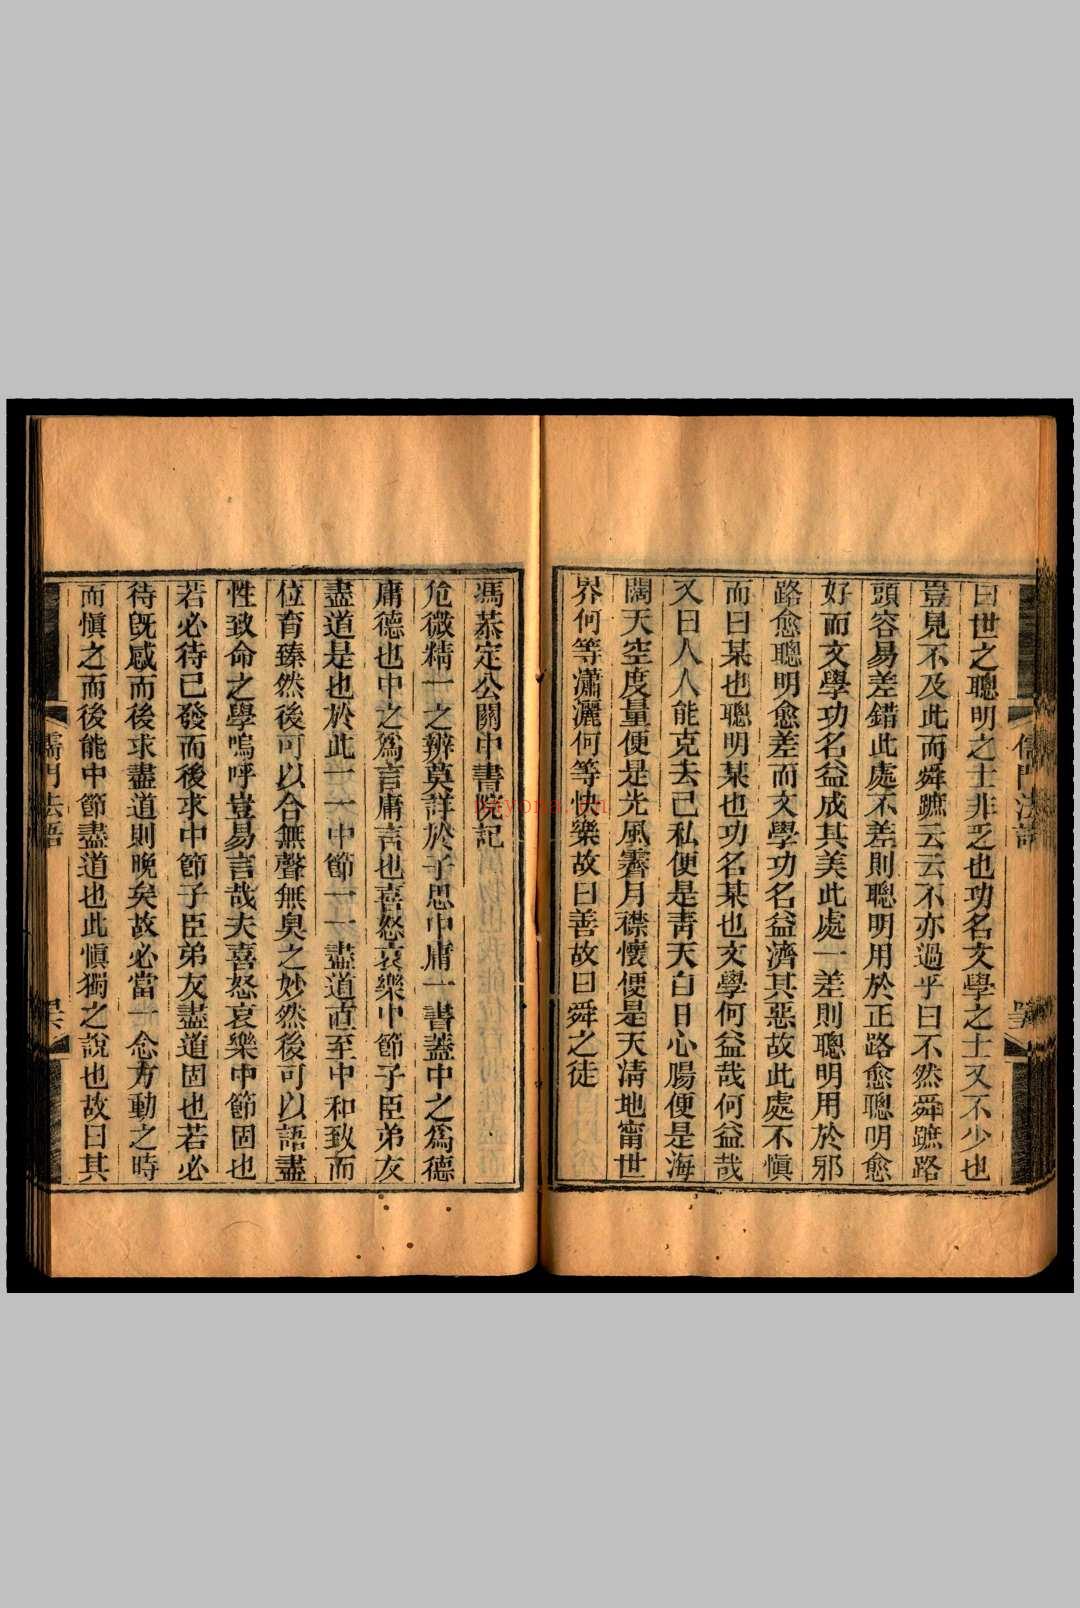 曰世之聰明之士非乏也功名文學之士又不少也
豈見不及此而舜蹠云云不亦過乎曰不然舜蹠路
頭容易差錯此處不差則聰明用於正路愈聰明愈
好而文學功名益成其美此處一差則聰明用於邪
路愈聰明愈差而文學功名益濟其惡故此處不慎
而曰某也聰明某也功名某也文學何益哉何益哉
又曰人人能克去己私便是青天白日心腸便是海
闊天空度量便是光風霽月襟懷便是天清地甯世
界何等瀟灑何等快樂故曰善故曰舜之徒
馮恭定公關中書院記
危微精一之辨莫詳於子思中庸一書蓋中之為德
庸德也中之為言庸言也喜怒哀樂中節子臣弟友
盡道是也於此一一中節一一盡道直至中和致而
位育臻然後可以合無聲無臭之妙然後可以語盡
性致命之學嗚呼豈易言哉夫喜怒哀樂中節固也
若必待已發而後求中節子臣弟友盡道固也若必
待既感而後求盡道則晚矣故必當一念方動之時
而慎之而後能中節盡道也此慎獨之說也故曰其
儒門法語